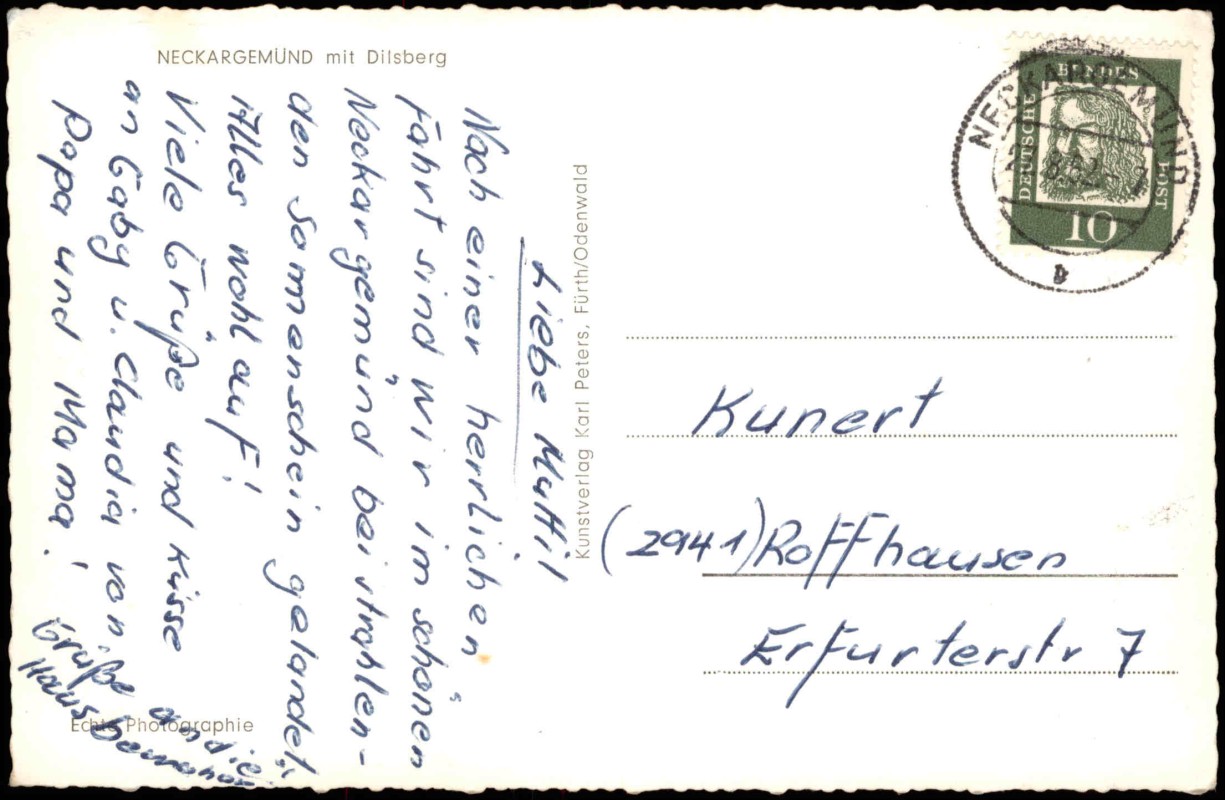 NECKARGEMÜND mit Dilsberg
Liebe Mutti!
Nach einer herrlichen
Fahrt sind wir im schönen
Neckargemünd bei strahlen-
den Sonnenschein gelandet.
Alles wohlauf!
Viele Grüße und Küsse
an Gaby u. Claudia von
Papa und Mama!
Grüße an die
Haus
Echte Photographie
Kunstverlag Karl Peters, Fürth/Odenwald
NECKARGEMÜND
8.62
DEUTSCHE
BUNDES
POST
10
Kunert
(2941) Roffhausen
Erfurterstr 7